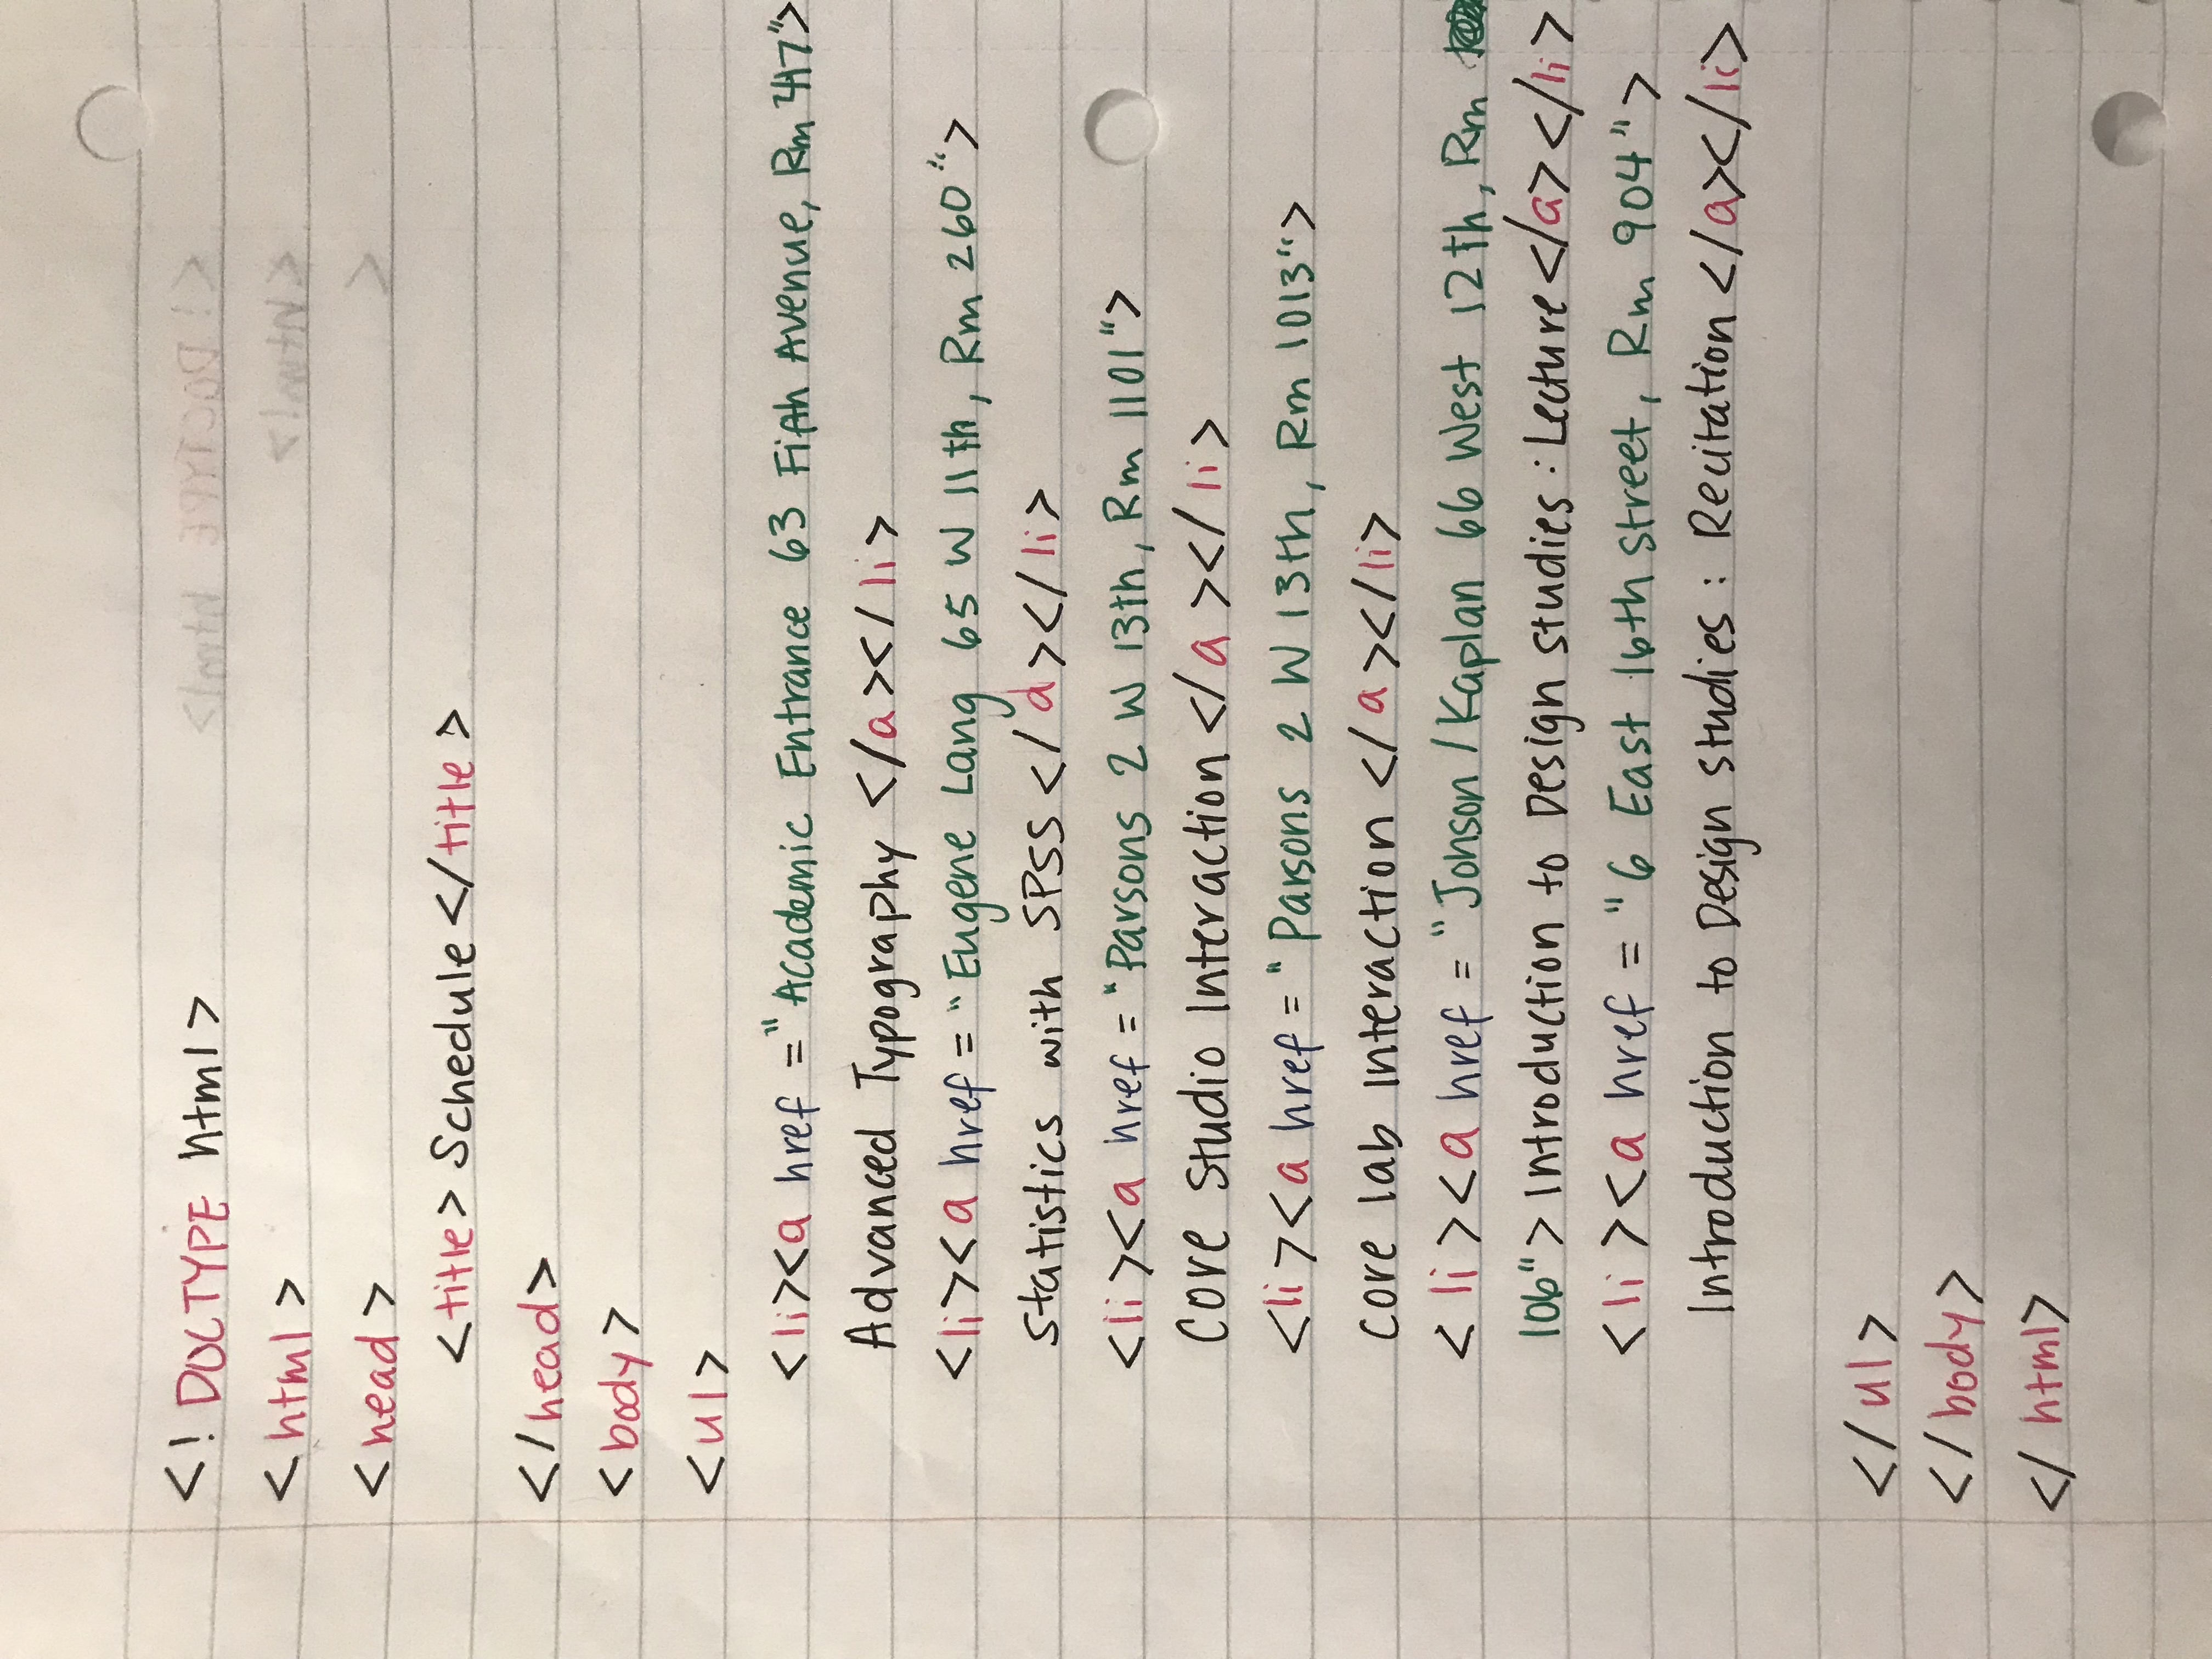 <! DOCTYPE html>
<html>
<head>
<title> Schedule </title>
</head>
<body>
<ul>
<li><a href ="Academic Entrance 63 Fifth Avenue, Rm 417">
Advanced Typography </a></li>
<li><a href = "Eugene Lang 65 W 11th, Rm 260">
Statistics with SPSS </a></li>
<li><a href = "Parsons 2 W 13th, Rm 1101">
Core Studio Interaction </a></li>
<li><a href = "Parsons 2 W 13th, Rm 1013">
core lab interaction </a></li>
<li><a href = "Johson / Kaplan 66 West 12th, Rm
106"> Introduction to Design studies : Lecture </a></li>
<li><a href = "6 East 16th street, Rm 904">
Introduction to Design studies : Recitation </a></li>
</ul>
</body>
</html>